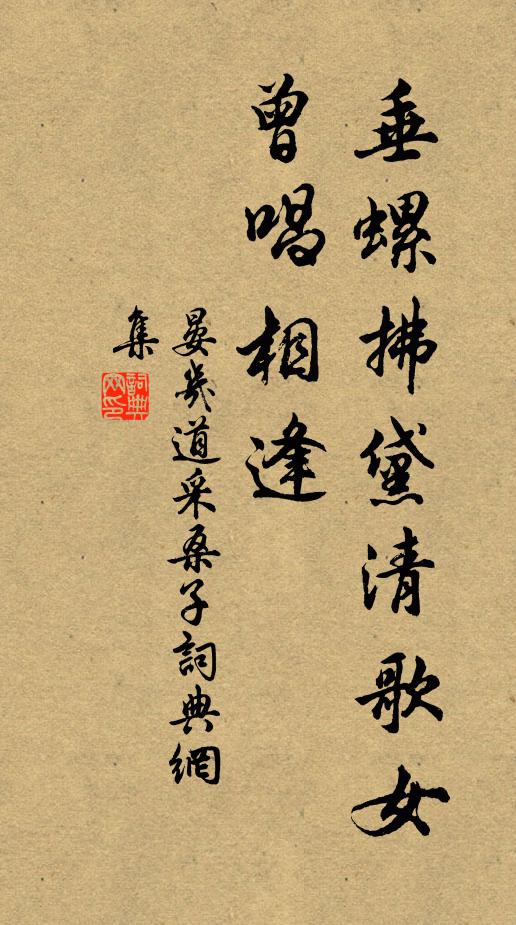 垂螺拂黛清歌女
曾唱相逢
晏几道采桑子詞典網
集
詞典網印